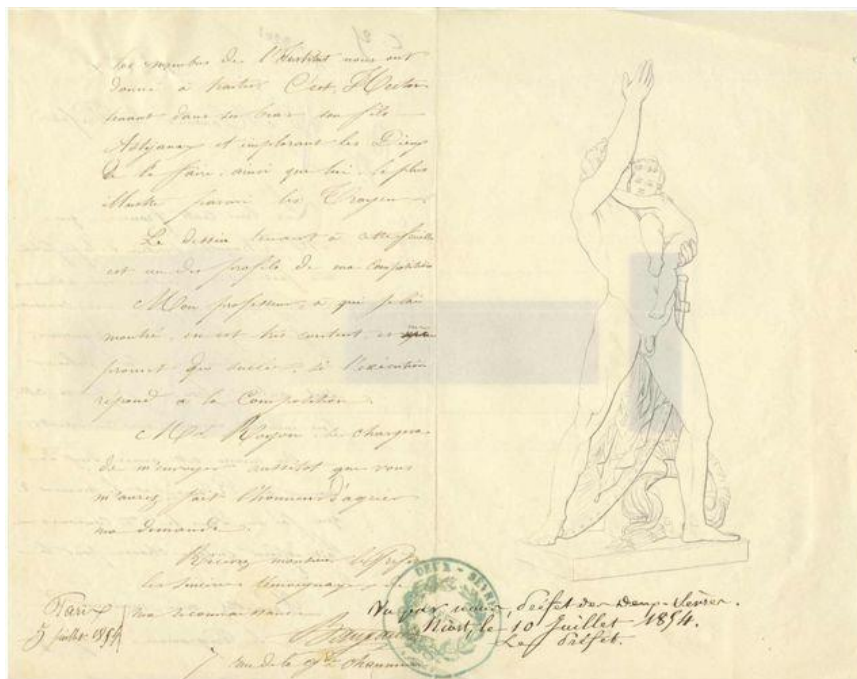 les membres de l'Institut nous ont
donné à traiter C'est Hector
tenant dans ses bras son fils
Astyanax et implorant les Dieux
de le faire, ainsi que lui, le plus
illustre parmi les Troyens.
Le dessin tenant à cette feuille
est un des profils de ma composition
Mon professeur, à qui je l'ai
montré, en est très content, et
promet du succès, si l'exécution
répond à la Composition.
se chargera
de m'envoyer aussitôt que vous
m'aurez fait l'honneur d'agréer
ma demande.
Recevez monsieur le Préfet
les sincères témoignages de
ma reconnaissance
Paris
5 juillet 1854
7 rue de la Gde Chaumière
DEUX-SEVRES
Vu par nous, Préfet des Deux-Sèvres.
Niort, le 10 Juillet 1854.
Le Préfet.